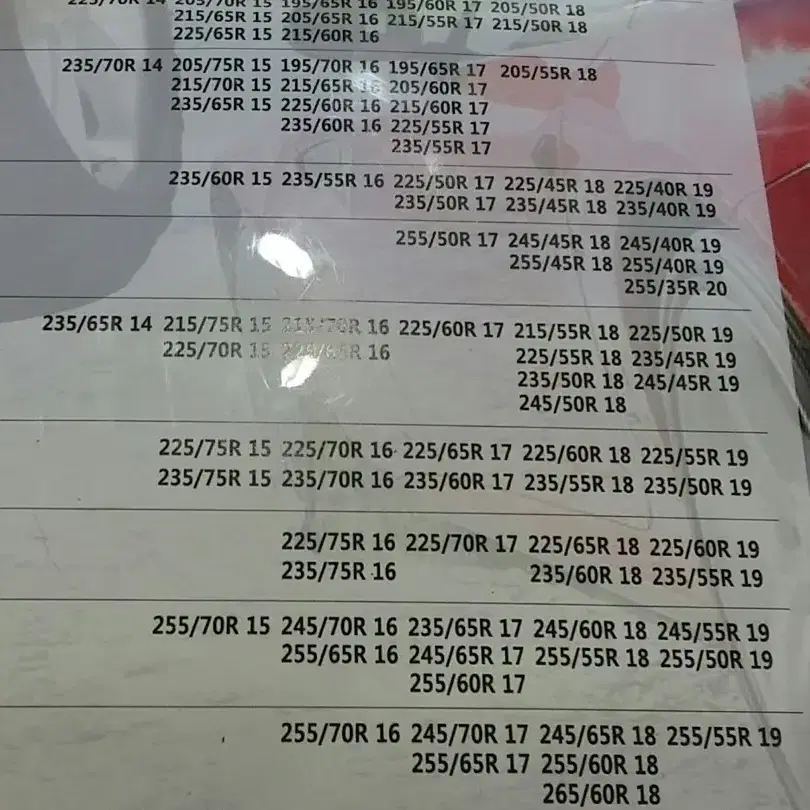 225/70R 14 205/70R 15 195/65R 16 195/60R 17 205/50R 18
215/65R 15 205/65R 16 215/55R 17 215/50R 18
225/65R 15 215/60R 16
235/70R 14 205/75R 15 195/70R 16 195/65R 17 205/55R 18
215/70R 15 215/65R 16 205/60R 17
235/65R 15 225/60R 16 215/60R 17
235/60R 16 225/55R 17
235/55R 17
235/60R 15 235/55R 16 225/50R 17 225/45R 18 225/40R 19
235/50R 17 235/45R 18 235/40R 19
255/50R 17 245/45R 18 245/40R 19
255/45R 18 255/40R 19
255/35R 20
235/65R 14 215/75R 15 215/70R 16 225/60R 17 215/55R 18 225/50R 19
225/70R 15 225/65R 16 225/55R 18 235/45R 19
235/50R 18 245/45R 19
245/50R 18
225/75R 15 225/70R 16 225/65R 17 225/60R 18 225/55R 19
235/75R 15 235/70R 16 235/60R 17 235/55R 18 235/50R 19
225/75R 16 225/70R 17 225/65R 18 225/60R 19
235/75R 16 235/60R 18 235/55R 19
255/70R 15 245/70R 16 235/65R 17 245/60R 18 245/55R 19
255/65R 16 245/65R 17 255/55R 18 255/50R 19
255/60R 17
255/70R 16 245/70R 17 245/65R 18 255/55R 19
255/65R 17 255/60R 18
265/60R 18